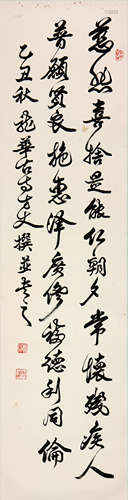 慈悲喜捨是能仁朝夕常懷殘疾人
普願賢良施惠澤廣修福德利同倫
乙丑秋龍華古寺方丈撰並書之